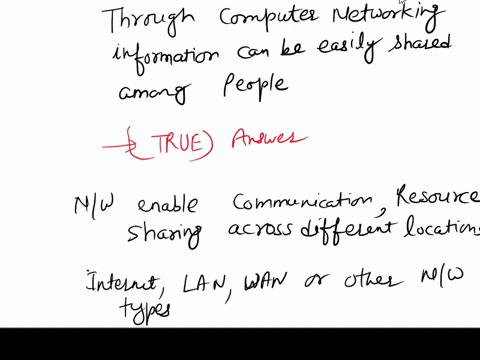 Through Computer Networking
information can be easily shared
among People
→ (TRUE) Answer
N/W enable Communication, Resource
sharing across different locations
Internet, LAN, WAN or other N/W
types